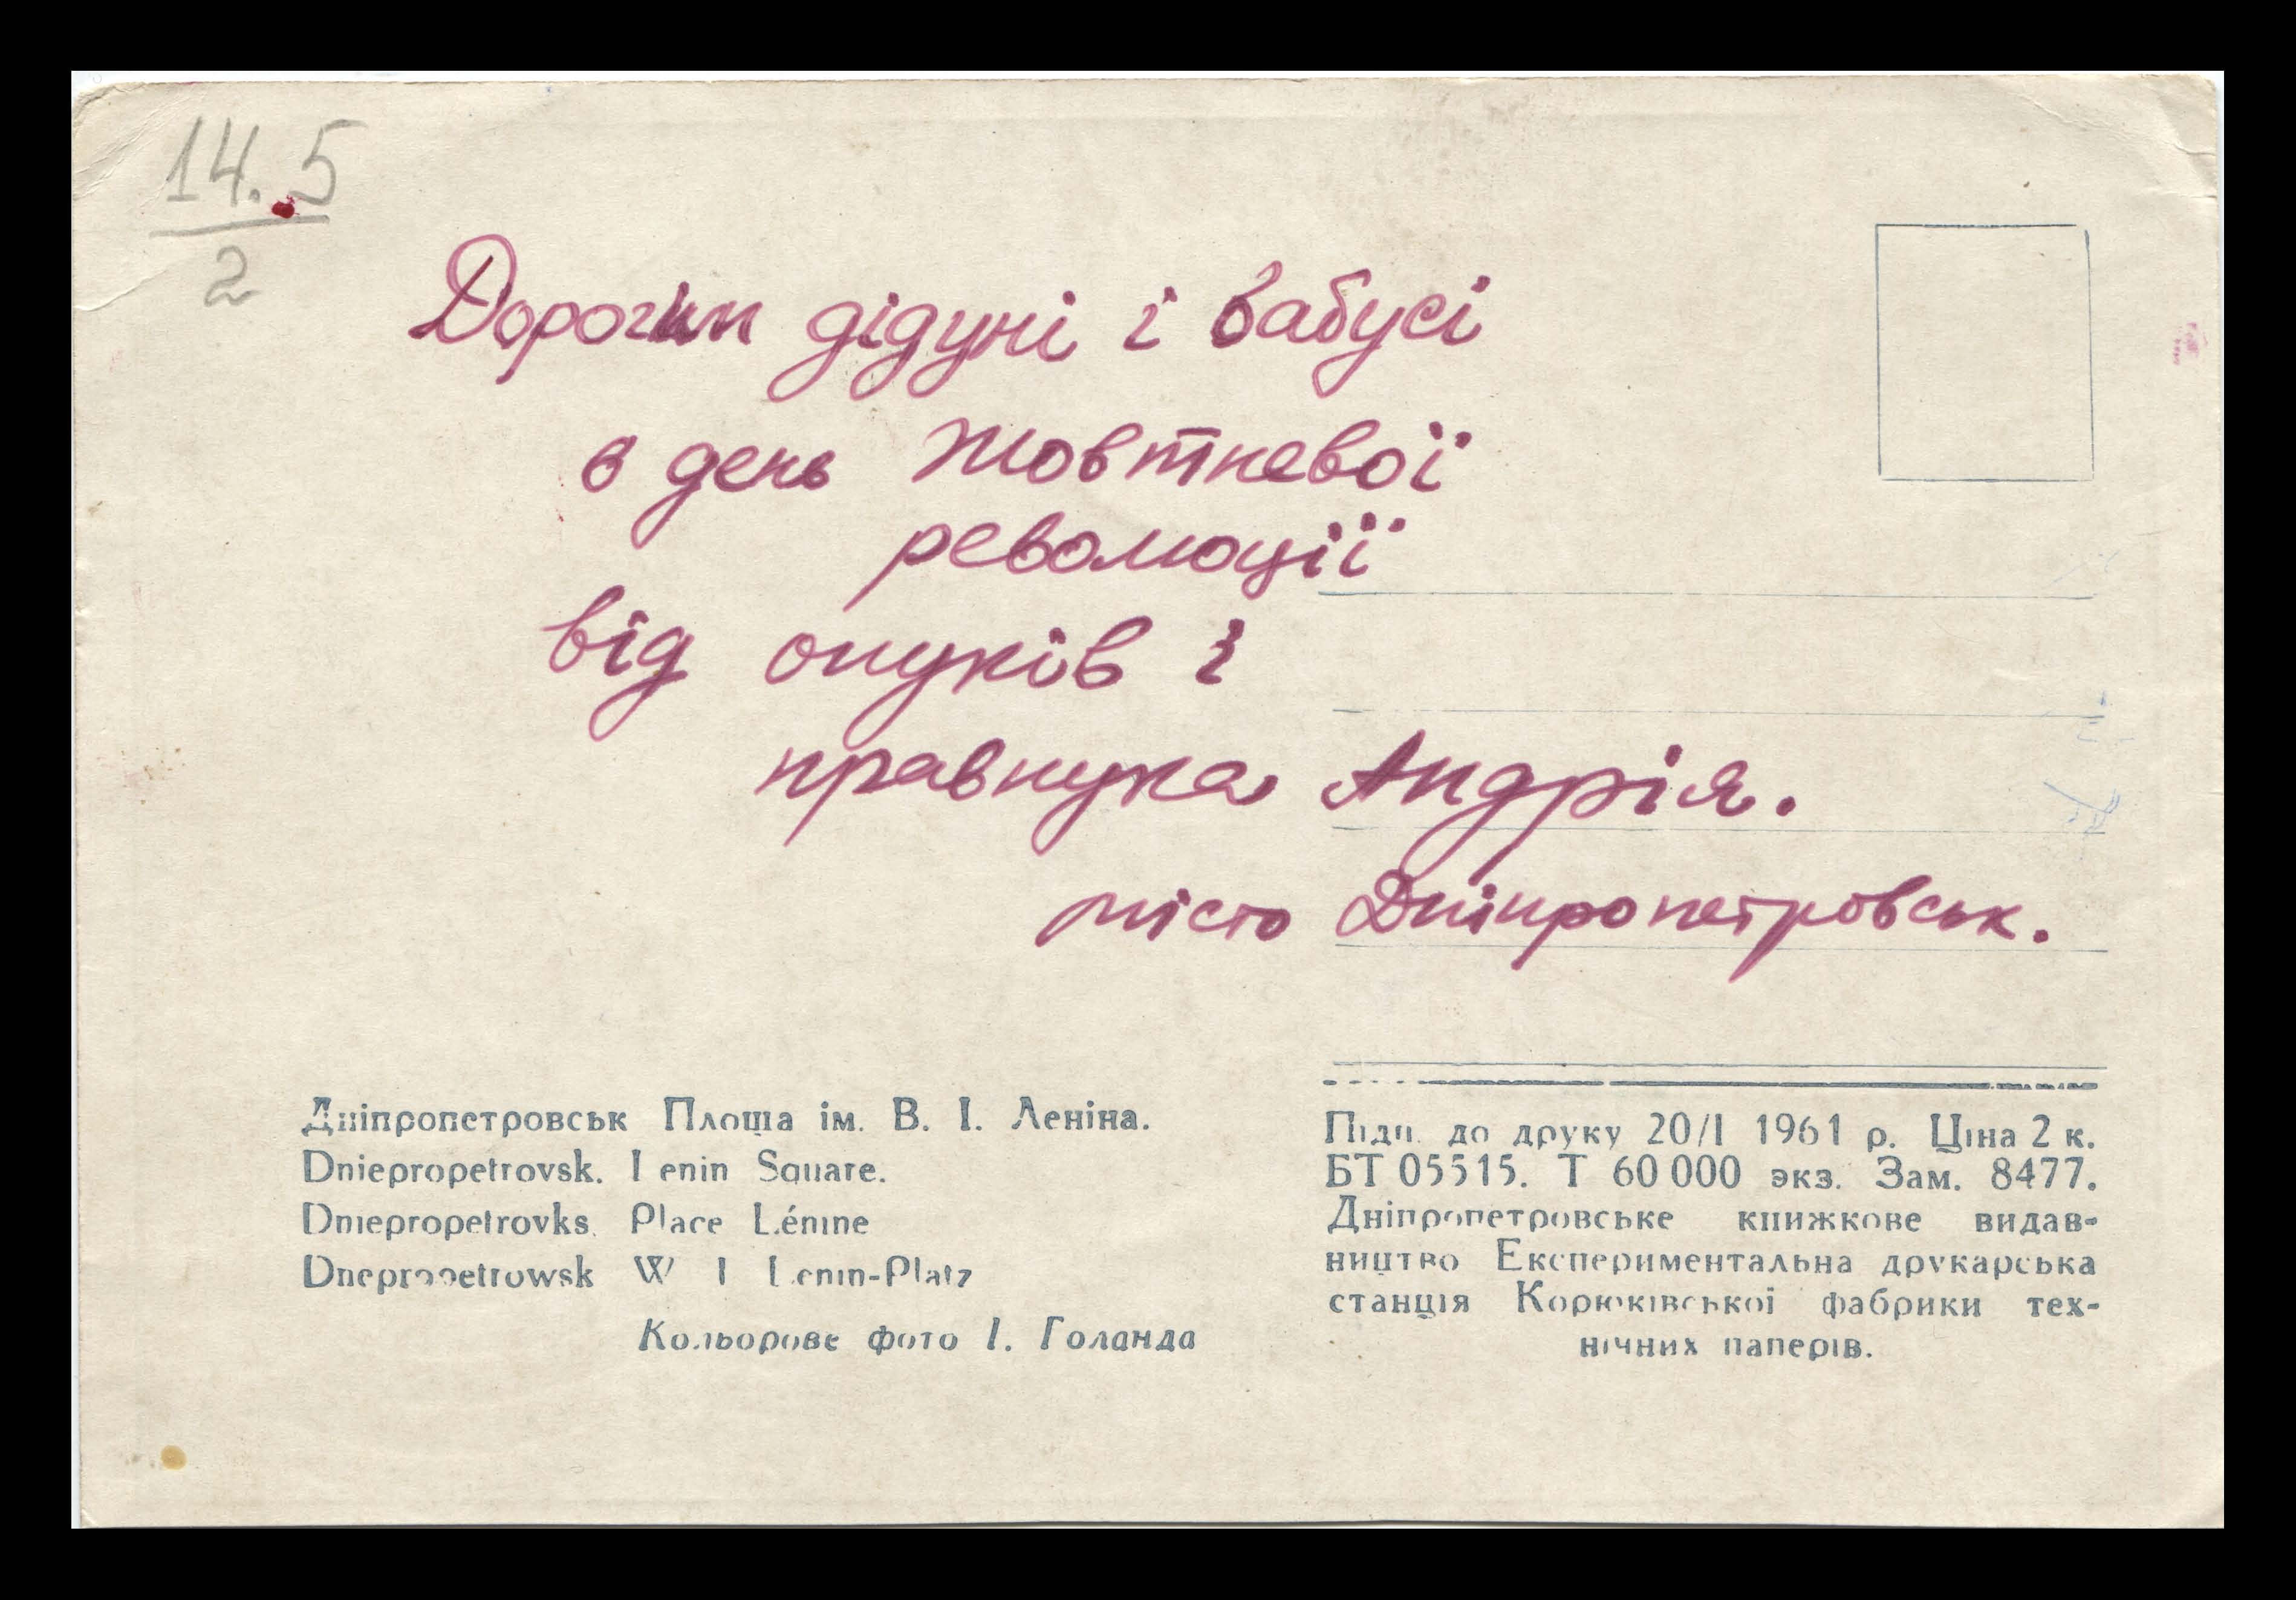 14.5
2
Дорогим дідуні і бабусі
в день Жовтневої
революції
від онуків і
правнука Андрія.
місто Дніпропетровськ.
Дніпропетровськ Площа ім. В. І. Леніна.
Dniepropetrovsk. Lenin Square.
Dniepropetrovks. Place Lénine
Dnepropetrowsk W I Lenin-Platz
Кольорове фото І. Голанда
Підп. до друку 20/I 1961 р. Ціна 2 к.
БТ 05515. Т 60 000 экз. Зам. 8477.
Дніпропетровське книжкове видав-
ництво Експериментальна друкарська
станція Корюківської фабрики тех-
нічних паперів.